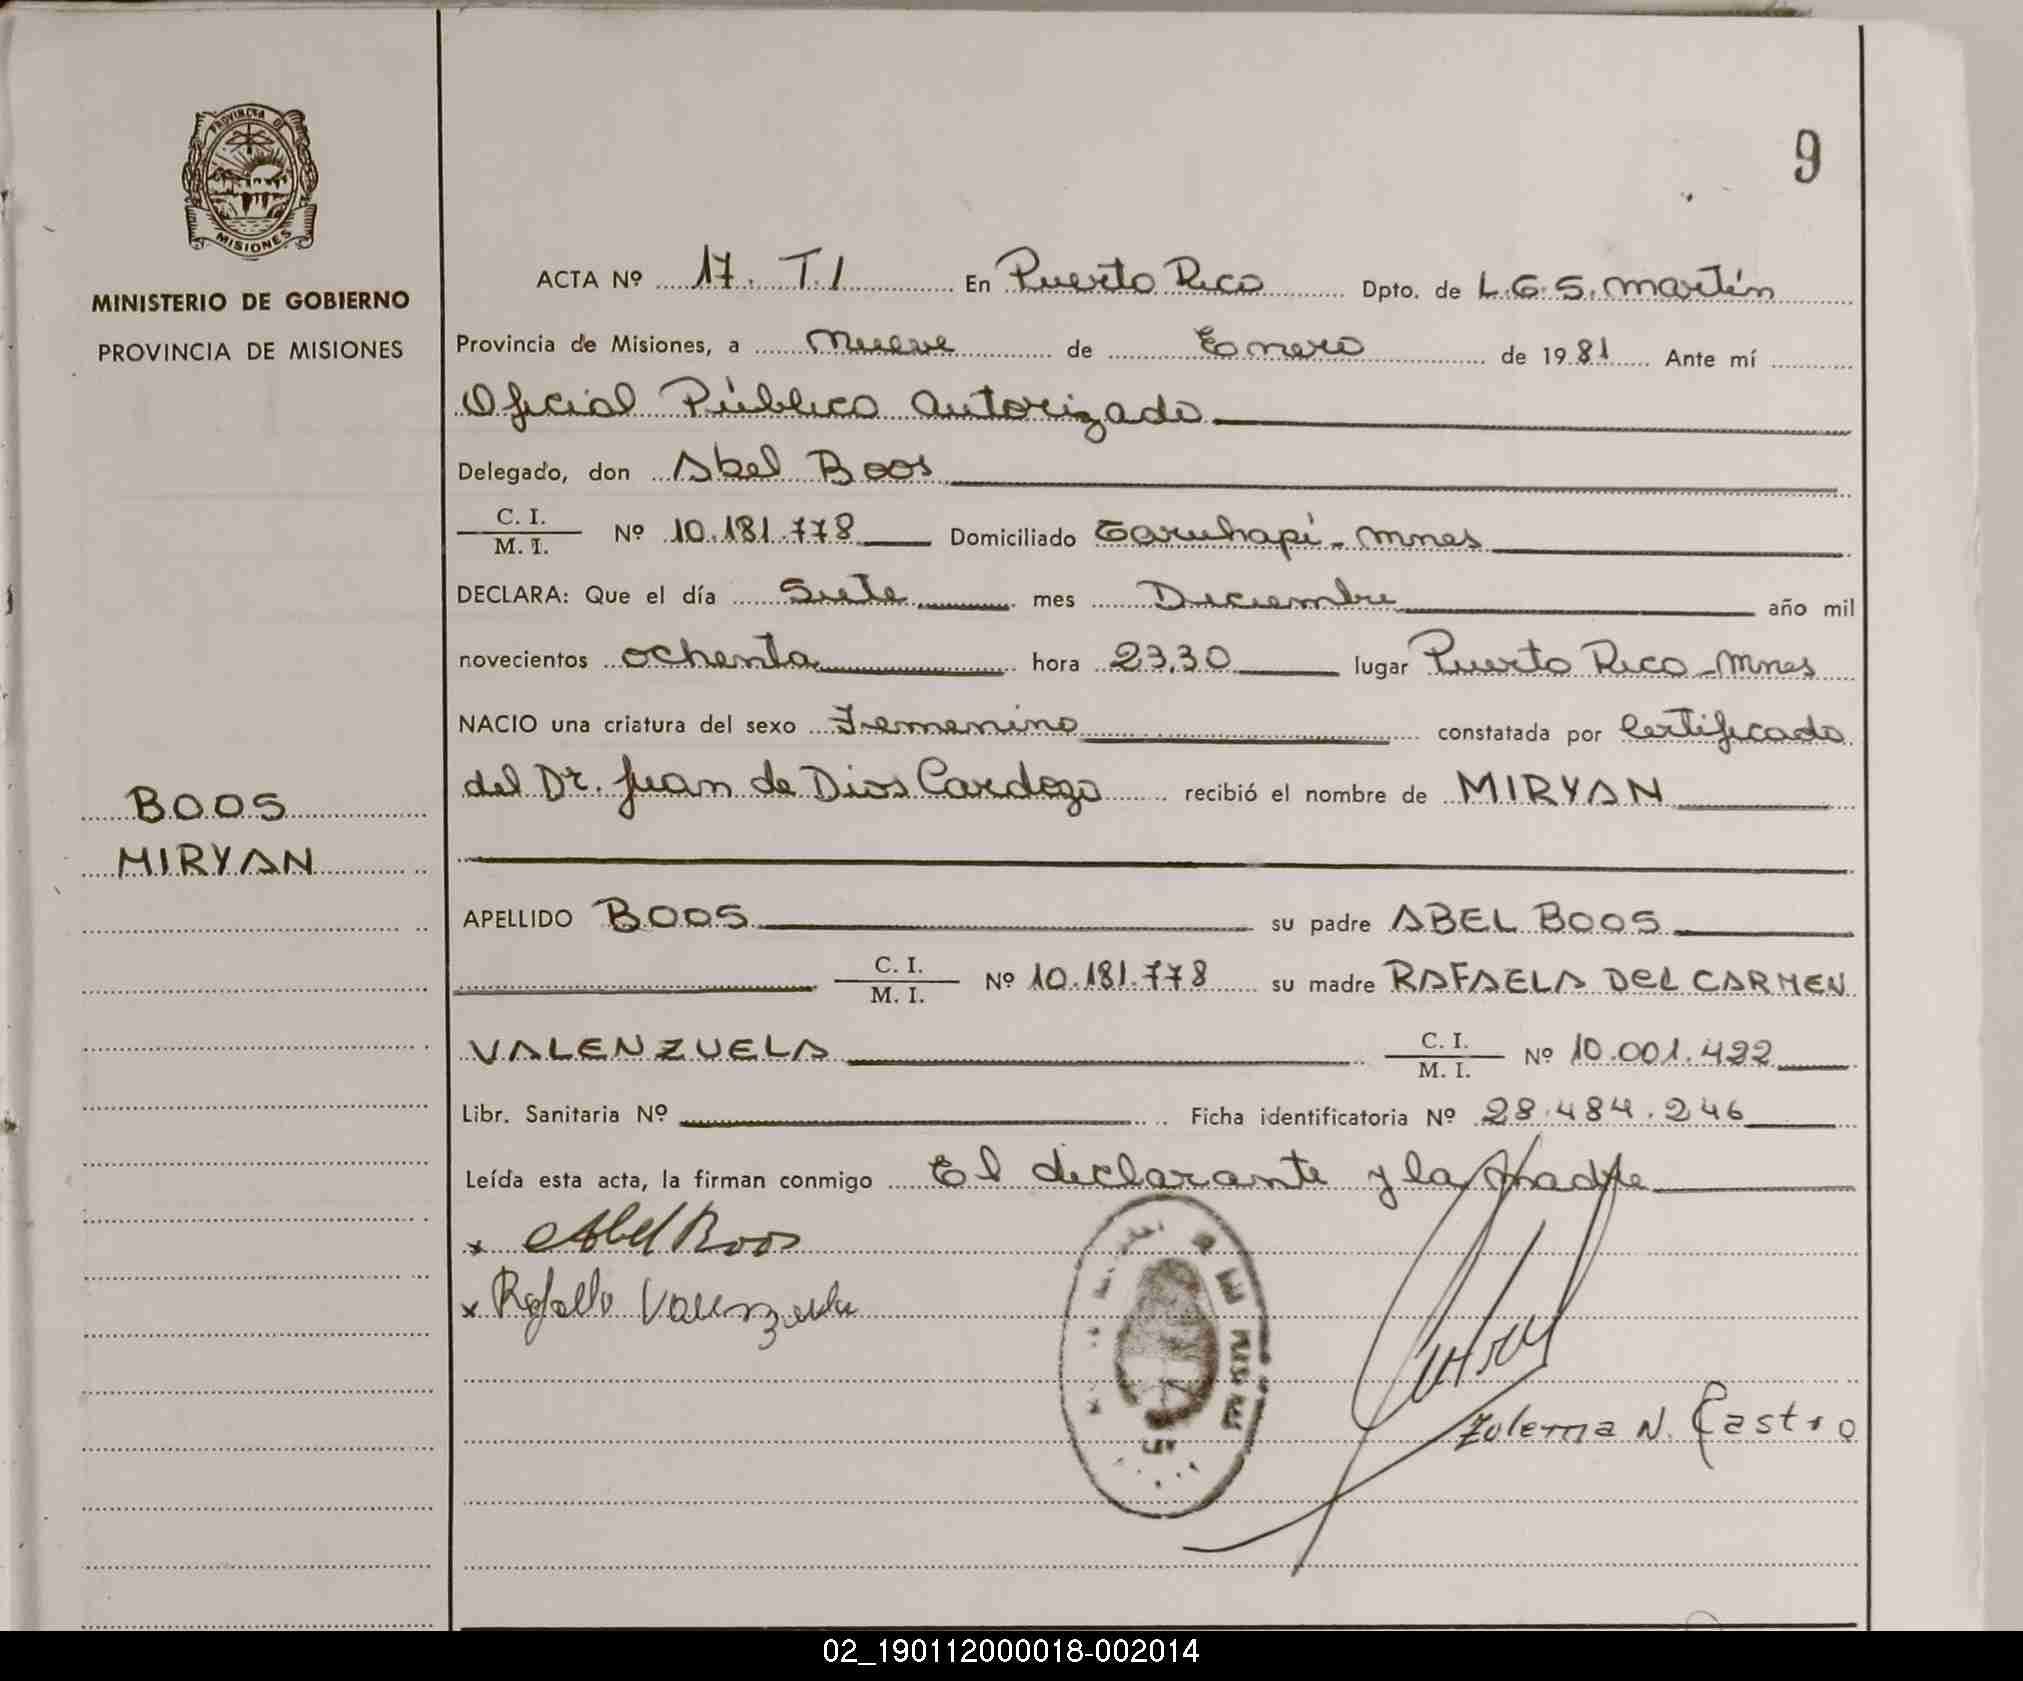 PROVINCIA DE
MISIONES
MINISTERIO DE GOBIERNO
PROVINCIA DE MISIONES
BOOS
MIRYAN
9
ACTA Nº 17. T.I En Puerto Rico Dpto. de L.G.S. Martín
Provincia de Misiones, a nueve de Enero de 1981 Ante mí
Oficial Público autorizado
Delegado, don Abel Boos
C. I.
M. I. Nº 10.181.778 Domiciliado Caruhapí - Mnes
DECLARA: Que el día Siete mes Diciembre año mil
novecientos ochenta hora 23,30 lugar Puerto Rico - Mnes
NACIO una criatura del sexo Femenino constatada por Certificado
del Dr. Juan de Dios Cardozo recibió el nombre de MIRYAN
APELLIDO BOOS su padre ABEL BOOS
C. I.
M. I. Nº 10.181.778 su madre RAFAELA DEL CARMEN
VALENZUELA C. I.
M. I. Nº 10.001.422
Libr. Sanitaria Nº Ficha identificatoria Nº 28.484.246
Leída esta acta, la firman conmigo El declarante y la madre
x Abel Boos
x Rafaela Valenzuela
Zulema N. Castro
02_190112000018-002014